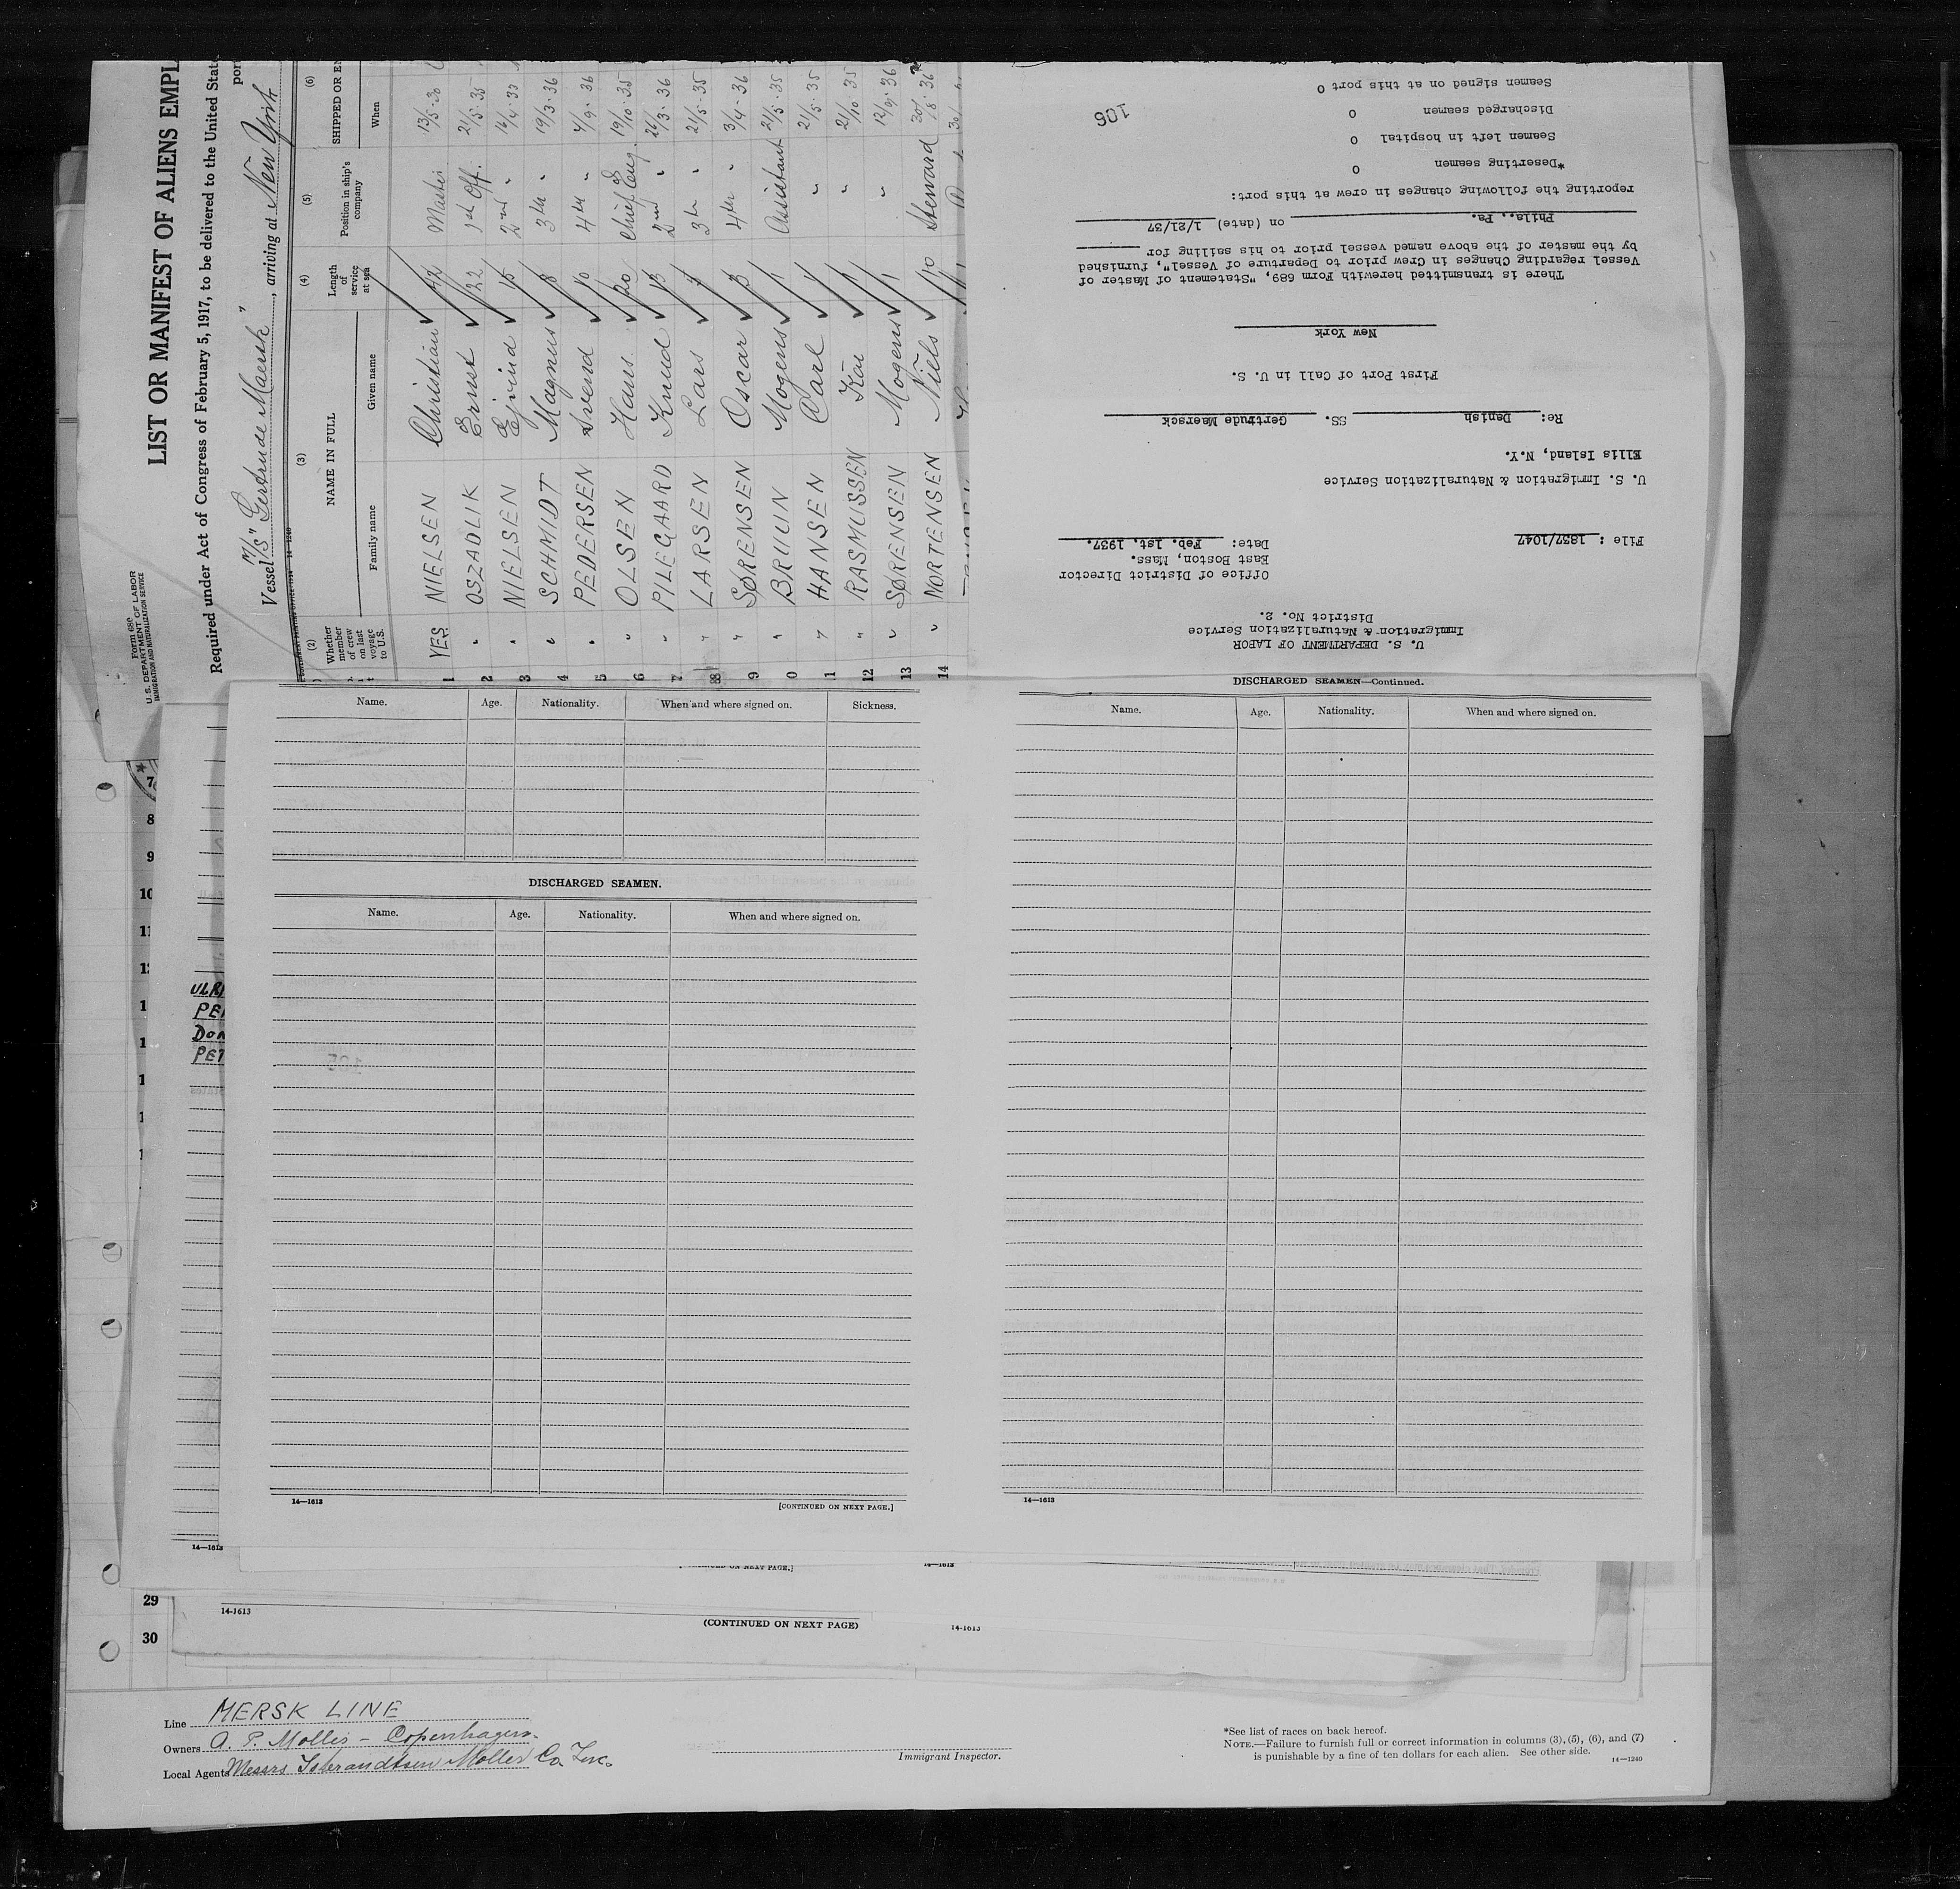 Form 680
U.S. DEPARTMENT OF LABOR
IMMIGRATION AND NATURALIZATION SERVICE
LIST OR MANIFEST OF ALIENS EMPL
Required under Act of Congress of February 5, 1917, to be delivered to the United State
Vessel M/S "Gertrude Maersk", arriving at New York
por
(2) (3) (4) (5) (6)
Whether member of crew on last voyage to U.S.
NAME IN FULL
Family name Given name
Length of service at sea
Position in ship's company
SHIPPED OR EN
When
1 YES NIELSEN Christian 42 Master
2 " OSZADLIK Ernst 22 1st Off. 21/5-35
3 " NIELSEN Ejvind 15 2nd "
4 " SCHMIDT Magnus 8 3th " 19/3-36
5 " PEDERSEN Svend 10 4th " 4/9-36
6 " OLSEN Hans 20 Chief Eng. 19/10-35
7 " PILEGAARD Knud 13 2nd "
8 " LARSEN Lars 7 3th " 21/5-35
9 " SØRENSEN Oscar 3 4th " 3/4-36
0 " BRUUN Mogens 1 Assistant 21/5-35
11 " HANSEN Carl 1 " 21/5-35
12 " RASMUSSEN Kai 1 " 21/10-35
13 " SØRENSEN Mogens 1 " 12/9-36
14 " MORTENSEN Niels 10 Steward 30/8-36
U. S. DEPARTMENT OF LABOR
Immigration & Naturalization Service
District No. 2.
Office of District Director
East Boston, Mass.
File : 1837/1047 Date: Feb. 1st. 1937.
U. S. Immigration & Naturalization Service
Ellis Island, N.Y.
Re: Danish SS. Gertrude Maersck
First Port of Call in U. S.
New York
There is transmitted herewith Form 689, "Statement of Master of
Vessel regarding Changes in Crew prior to Departure of Vessel", furnished
by the master of the above named vessel prior to his sailing for
Phila., Pa. on (date) 1/21/37
reporting the following changes in crew at this port:
*Deserting seamen 0
Seamen left in hospital 0
Discharged seamen 0
Seamen signed on at this port 0
106
Name. Age. Nationality. When and where signed on. Sickness.
DISCHARGED SEAMEN.
Name. Age. Nationality. When and where signed on.
14—1613 [CONTINUED ON NEXT PAGE.]
DISCHARGED SEAMEN—Continued.
Name. Age. Nationality. When and where signed on.
14—1613
7
8
9
10
11
ULRI
PE
DON
PET
14—1613
ON NEXT PAGE.]
14—1613
29
30
14-1613
(CONTINUED ON NEXT PAGE)
14-1613
Line MERSK LINE
Owners A. P. Moller - Copenhagen.
Local Agents Messrs Isbrandtsen Moller Co. Inc.
Immigrant Inspector.
*See list of races on back hereof.
NOTE.—Failure to furnish full or correct information in columns (3), (5), (6), and (7)
is punishable by a fine of ten dollars for each alien. See other side.
14—1240